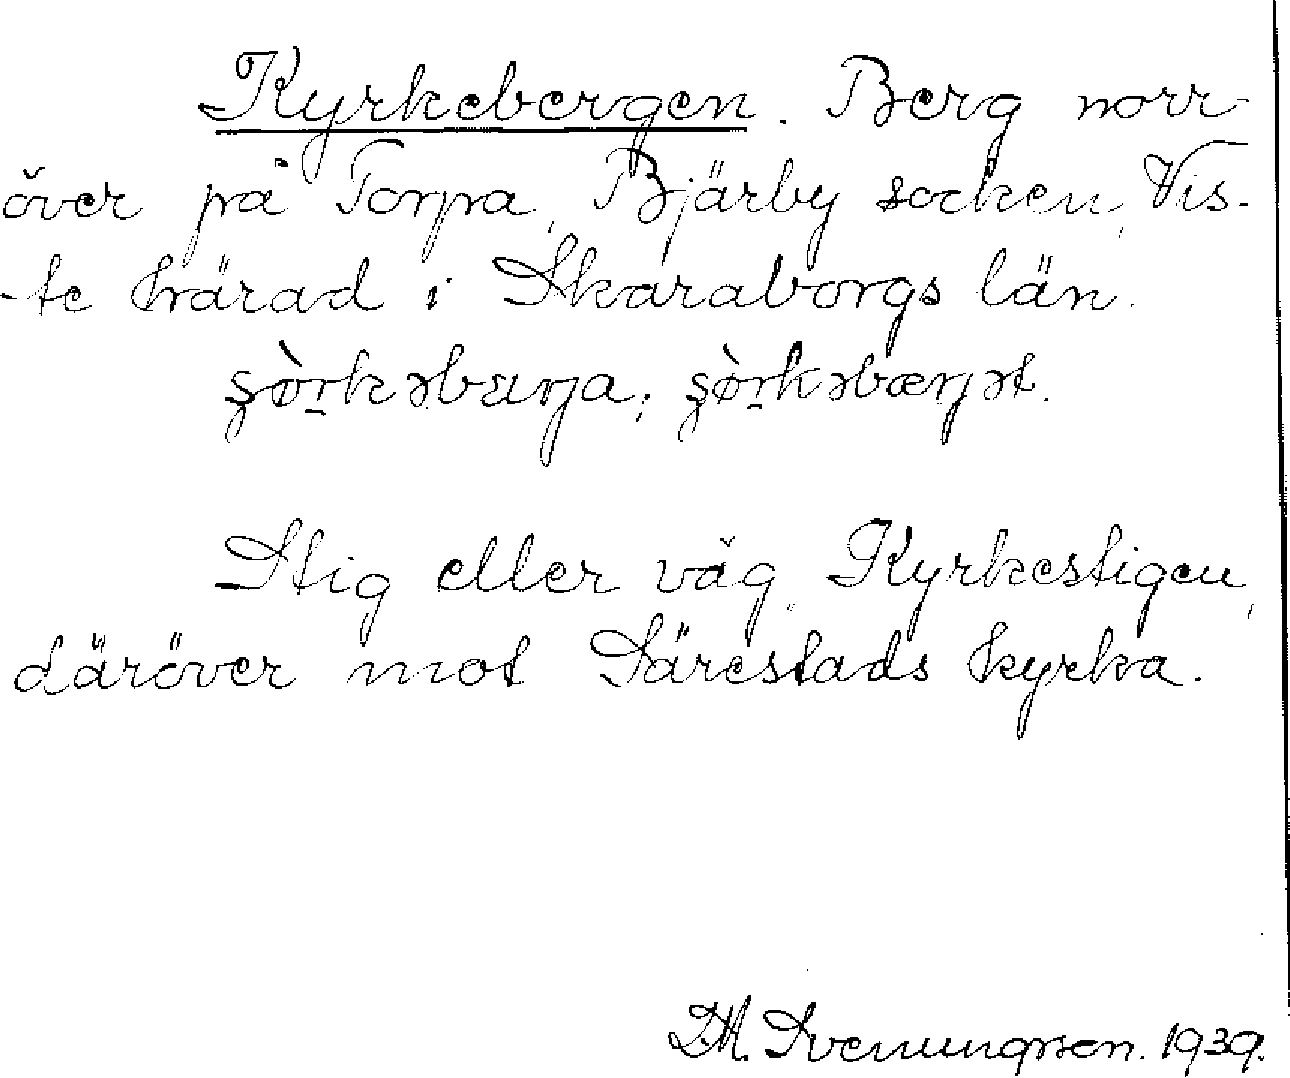 Kyrkebergen. Berg norr
över på Torpa, Bjärby socken, Vis-
-te härad i Skaraborgs län.
Stig eller väg, Kyrkestigen,
däröver mot Särestads kyrka.
D.M. Svenungsson. 1939.